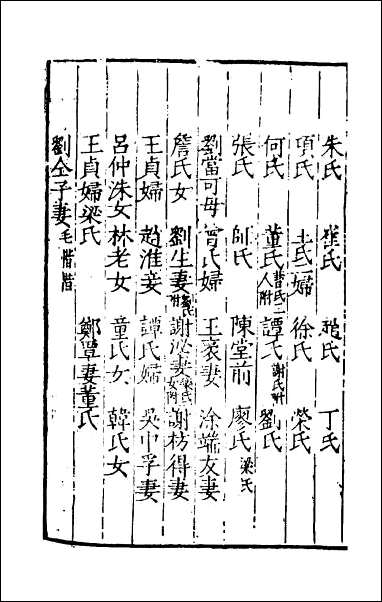 朱氏 崔氏 趙氏 丁氏
項氏 王氏二婦 徐氏 榮氏
何氏 董氏曹氏二人附 譚氏謝氏附 劉氏
張氏 師氏 陳堂前 廖氏梁氏
劉當可母 曾氏婦 王袤妻 涂端友妻
詹氏女 劉生妻 謝泌妻 謝枋得妻
王貞婦 趙淮妾 譚氏婦 吳中孚妻
呂仲洙女 林老女 童氏女 韓氏女
王貞婦梁氏 鄭覃妻董氏
劉仝子妻毛惜惜